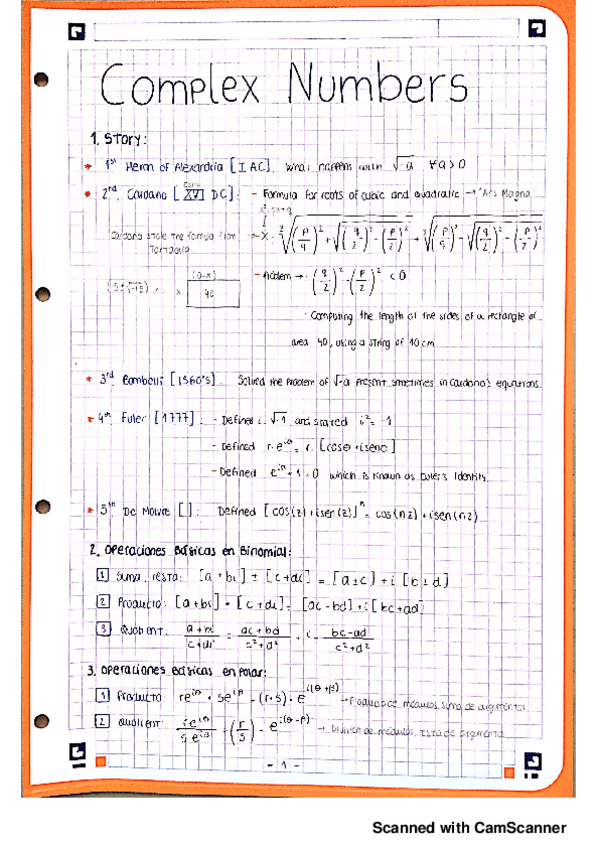 Complex Numbers
1. Story:
1st Heron of Alexandria [I AC]. What happens with √-a ∀a>0
2nd. Cardano [XVI DC]: - Formula for roots of cubic and quadratic → "Ars Magna
Cardano stole the formula from Tartaglia
X = ∛((p/q)² + √((q/2)² - (p/2)²)) + ∛((p/q)² - √((q/2)² - (p/2)²))
- Problem → (q/2)² - (p/2)² < 0
(5±√-15) x (10-x) 40
· Computing the length of the sides of a rectangle of
area 40, using a string of 10 cm
3rd. Bombelli [1560's]. Solved the problem of √-a present sometimes in Cardano's equations.
4th. Euler [1777]: - Defined i = √-1 and stated i² = -1
- Defined r·e^iθ = r·[cosθ + isenθ]
- Defined e^iπ + 1 = 0 which is known as Euler's Identity
5th De Moivre []: Defined [cos(z) + isen(z)]^n = cos(nz) + isen(nz)
2. Operaciones básicas en Binomial:
1 Suma, resta: [a + bi] ± [c + di] = [a ± c] + i [b ± d]
2 Producto: [a + bi] · [c + di] = [ac - bd] + i [bc + ad]
3 Quotient: a + bi / c + di = ac + bd / c² + d² + i · bc - ad / c² + d²
3. Operaciones básicas en Polar:
1 Producto re^iθ · se^iβ = (r·s) · e^i(θ+β) → Producto de módulos, suma de argumentos
2 Quotient: re^iθ / se^iβ = (r/s) · e^i(θ-β) → División de módulos, resta de argumento
- 1 -
Scanned with CamScanner